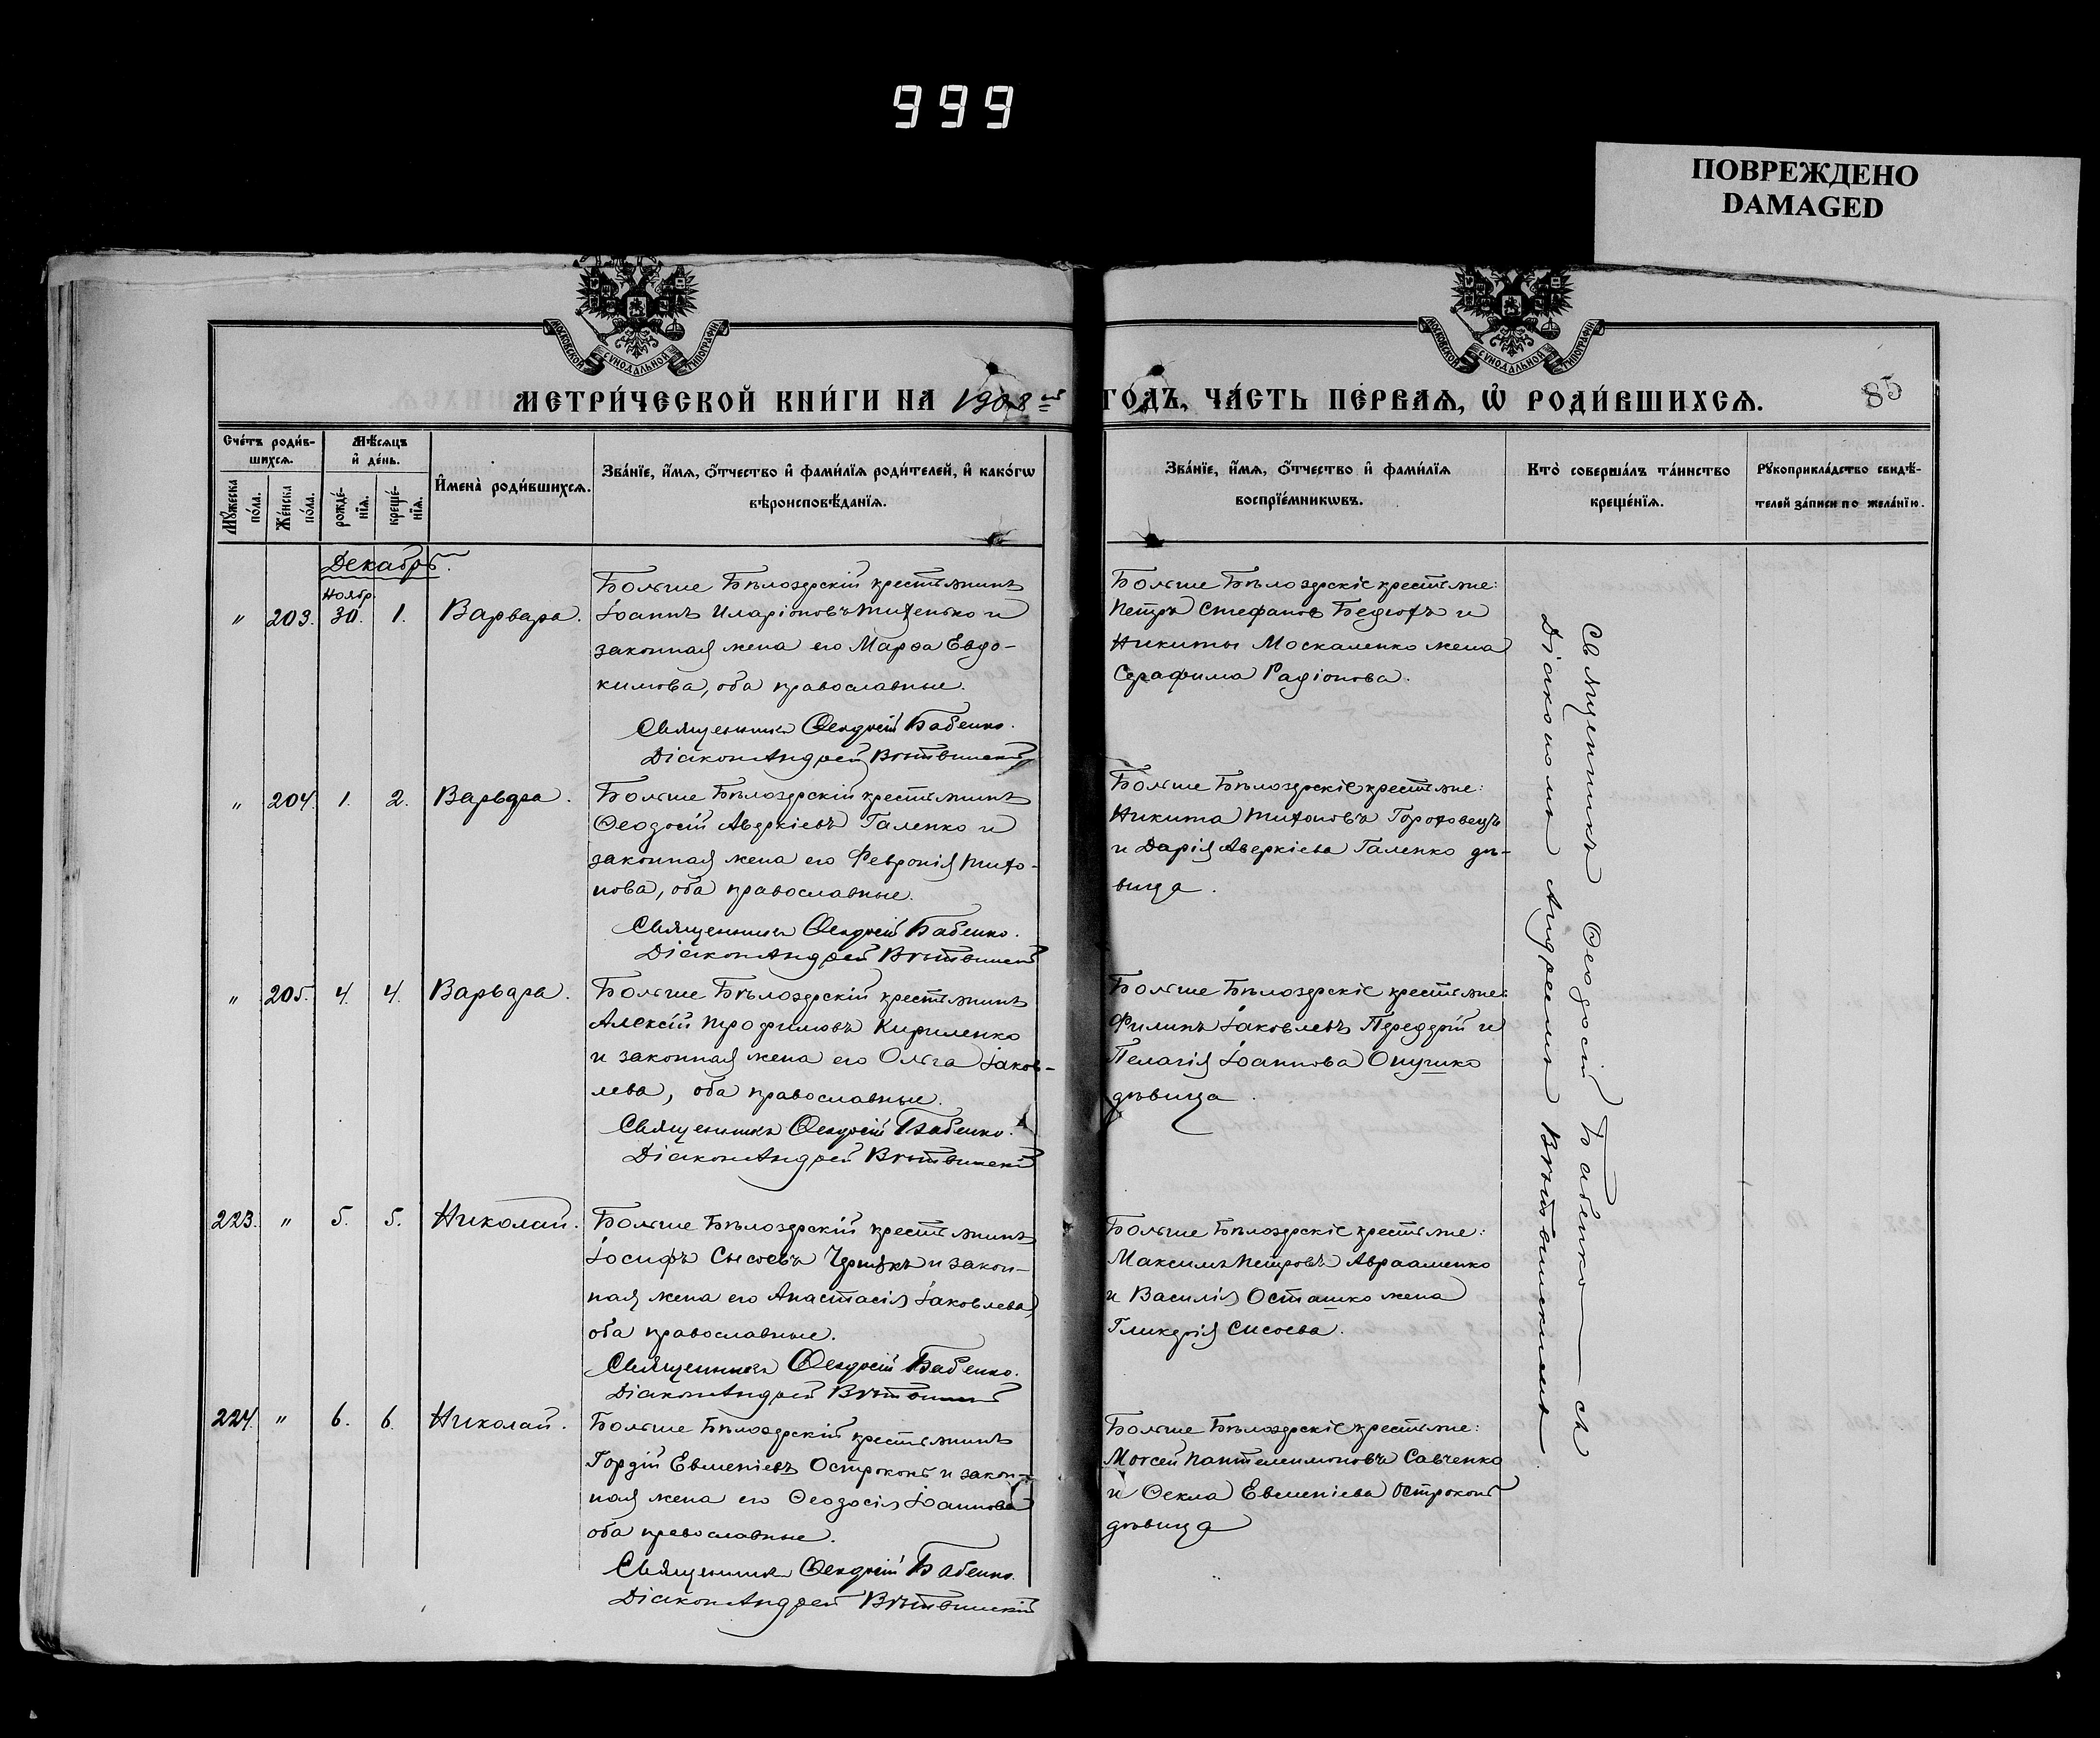 999
ПОВРЕЖДЕНО
DAMAGED
МОСКОВСКОЙ СѴНОДАЛЬНОЙ ТИПОГРАФІИ
МОСКОВСКОЙ СѴНОДАЛЬНОЙ ТИПОГРАФІИ
МЕТРИ́ЧЕСКОЙ КНИ́ГИ НА 1908 й ГОДЪ, ЧА́СТЬ ПЕ́РВАѦ, Ѡ҆ РОДИ́ВШИХСѦ.
85
Сче́тъ роди́в-
шихсѧ.
Мѣ́сѧцъ
и҆ де́нь.
Мꙋ́жеска по́ла.
Же́нска по́ла.
рожде́-
нїѧ.
креще́-
нїѧ.
И҆мена̀ роди́вшихсѧ.
Зва́нїе, и҆́мѧ, ѻ҆́тчество и҆ фами́лїѧ роди́телей, и҆ како́гѡ
вѣроисповѣ́данїѧ.
Зва́нїе, и҆́мѧ, ѻ҆́тчество и҆ фами́лїѧ
воспрїе́мникѡвъ.
Кто̀ соверша́лъ та́инство
креще́нїѧ.
Рꙋкоприкла́дство свидѣ́-
телей за́писи по жела́нїю.
Декабрь.
Ноябр.
" 203. 30. 1. Варвара.
Больше Бѣлозерскій крестьянинъ
Іоаннъ Иларіоновъ Тихенько и
законная жена его Марѳа Евдо-
кимова, оба православные.
Священникъ Ѳеодосій Бабенко.
Діаконъ Андрей Вѣтвинскій
Больше Бѣлозерскіе крестьяне:
Петръ Стефановъ и
Никиты Москаленко жена
Серафима Радіонова.
" 204. 1. 2. Варвара.
Больше Бѣлозерскій крестьянинъ
Ѳеодосій Аверкіевъ Галенко и
законная жена его Февронія Тихо-
нова, оба православные.
Священникъ Ѳеодосій Бабенко.
Діаконъ Андрей Вѣтвинскій
Больше Бѣлозерскіе крестьяне:
Никита Тихоновъ Гороховецъ
и Дарія Аверкіева Галенко дѣ-
вица.
" 205. 4. 4. Варвара.
Больше Бѣлозерскій крестьянинъ
Алексій Трофимовъ Кириленко
и законная жена его Ольга Іаков-
лева, оба православные.
Священникъ Ѳеодосій Бабенко.
Діаконъ Андрей Вѣтвинскій
Больше Бѣлозерскіе крестьяне:
Филипъ Іаковлевъ Передерій и
Пелагія Іоаннова Опушко
дѣвица.
223. " 5. 5. Николай.
Больше Бѣлозерскій крестьянинъ
Іосифъ Сысоевъ и закон-
ная жена его Анастасія Іаковлева,
оба православные.
Священникъ Ѳеодосій Бабенко.
Діаконъ Андрей Вѣтвинскій
Больше Бѣлозерскіе крестьяне:
Максимъ Петровъ Авраменко
и Василія Осташко жена
Гликерія Сисоева.
224. " 6. 6. Николай.
Больше Бѣлозерскій крестьянинъ
Гордій Евменіевъ Остроконь и закон-
ная жена его Ѳеодосія Іоаннова
оба православные.
Священникъ Ѳеодосій Бабенко.
Діаконъ Андрей Вѣтвинскій
Больше Бѣлозерскіе крестьяне:
Моѵсей Пантелеимоновъ Савченко
и Ѳекла Евменіева Остроконь
дѣвица
Священникъ Ѳеодосій Бабенко съ
Діакономъ Андреемъ Вѣтвинскимъ